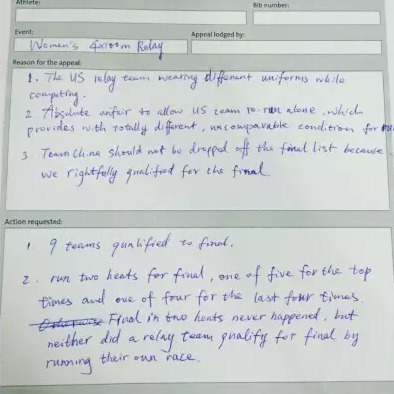 Athlete:
Bib number:
Event:
Women's 4x100m Relay
Appeal lodged by:
Reason for the appeal:
1. The US relay team wearing different uniforms while
competing.
2 Absolute unfair to allow US team re-run alone, which
provides with totally different, uncomparable condition for
3. Team China should not be dropped off the final list because
we rightfully qualified for the final
Action requested:
1. 9 teams qualified to final.
2. run two heats for final, one of five for the top
times and one of four for the last four times.
Otherwise Final in two heats never happened, but
neither did a relay team qualify for final by
running their own race.